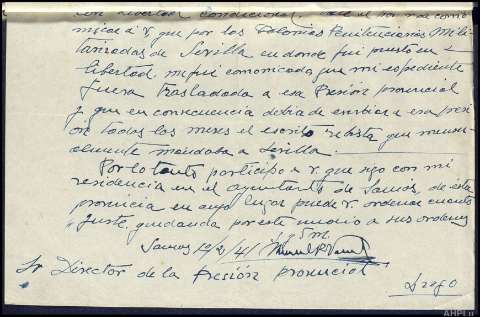 con libertad condicional
nicar a V. que por las Colonias Penitenciarias Mili-
tarizadas de Sevilla en donde fui puesto en
libertad, me fui comonicada que mi espediente
fuera trasladada a esa Presión provincial
y que en consecuencia debia de enviar a esa presi
ón todos los meses el escrito rebista que mensu-
almente mandaba a Sevilla.
Por lo tanto participo a V. que sigo con mi
residencia en el ayuntamto de Samos, de esta
provincia en cuyo lugar puede V. ordenar cuanto
guste, quedando por este motivo a sus ordenes
Samos 19/2/41
Sr Director de la Presión provincial
Lugo
AHPLu